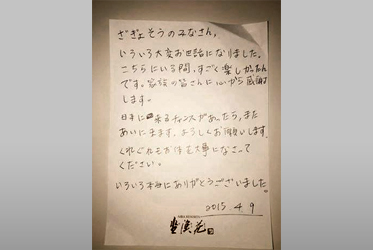 ざぎょそうのみなさん、
いろいろ大変お世話になりました。
こちらにいる間、すごく楽しかったん
です。家族の皆さんに心から感謝
します。
日本に来るチャンスがあったら、また
あいにきます。よろしくお願いします。
くれぐれもお体を大事になさって
ください。
いろいろ本当にありがとうございました。
2015. 4. 9